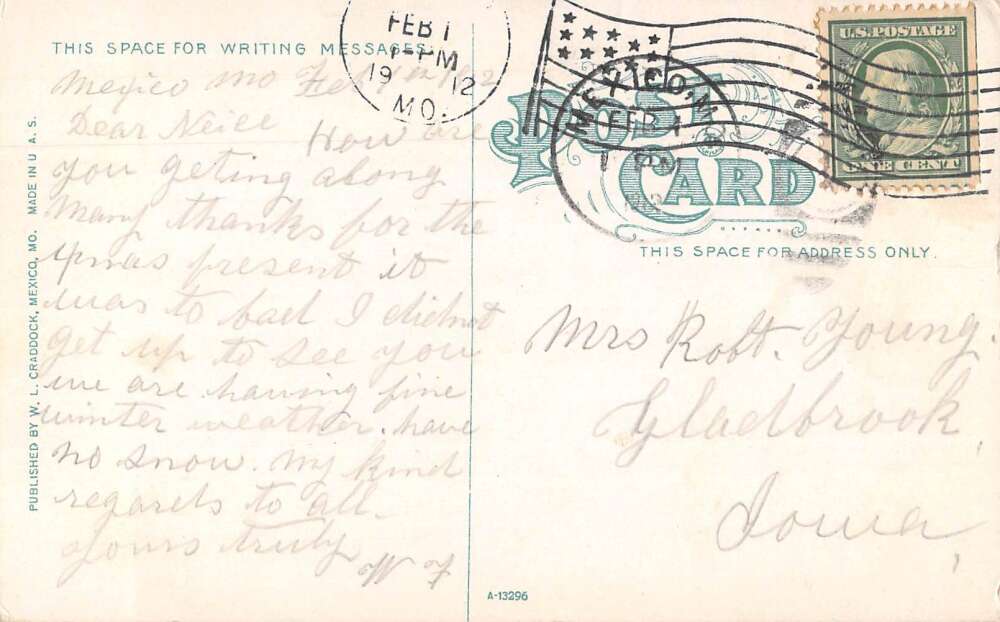 THIS SPACE FOR WRITING MESSAGES.
FEB 1
1-PM
1912
MO.
MEXICO, M
FEB 1
PM
U.S. POSTAGE
ONE CENT
POST
CARD
THIS SPACE FOR ADDRESS ONLY.
Mexico Mo Feb
Dear Neice How are
you geting along
Many thanks for the
Xmas present it
was to bad I did not
get up to see you
we are having fine
winter weather. have
no snow. My kind
regards to all.
Yours truly
W F
Mrs Robt. Young.
Gladbrook,
Iowa,
PUBLISHED BY W. L. CRADDOCK, MEXICO, MO. MADE IN U. A. S.
A-13296